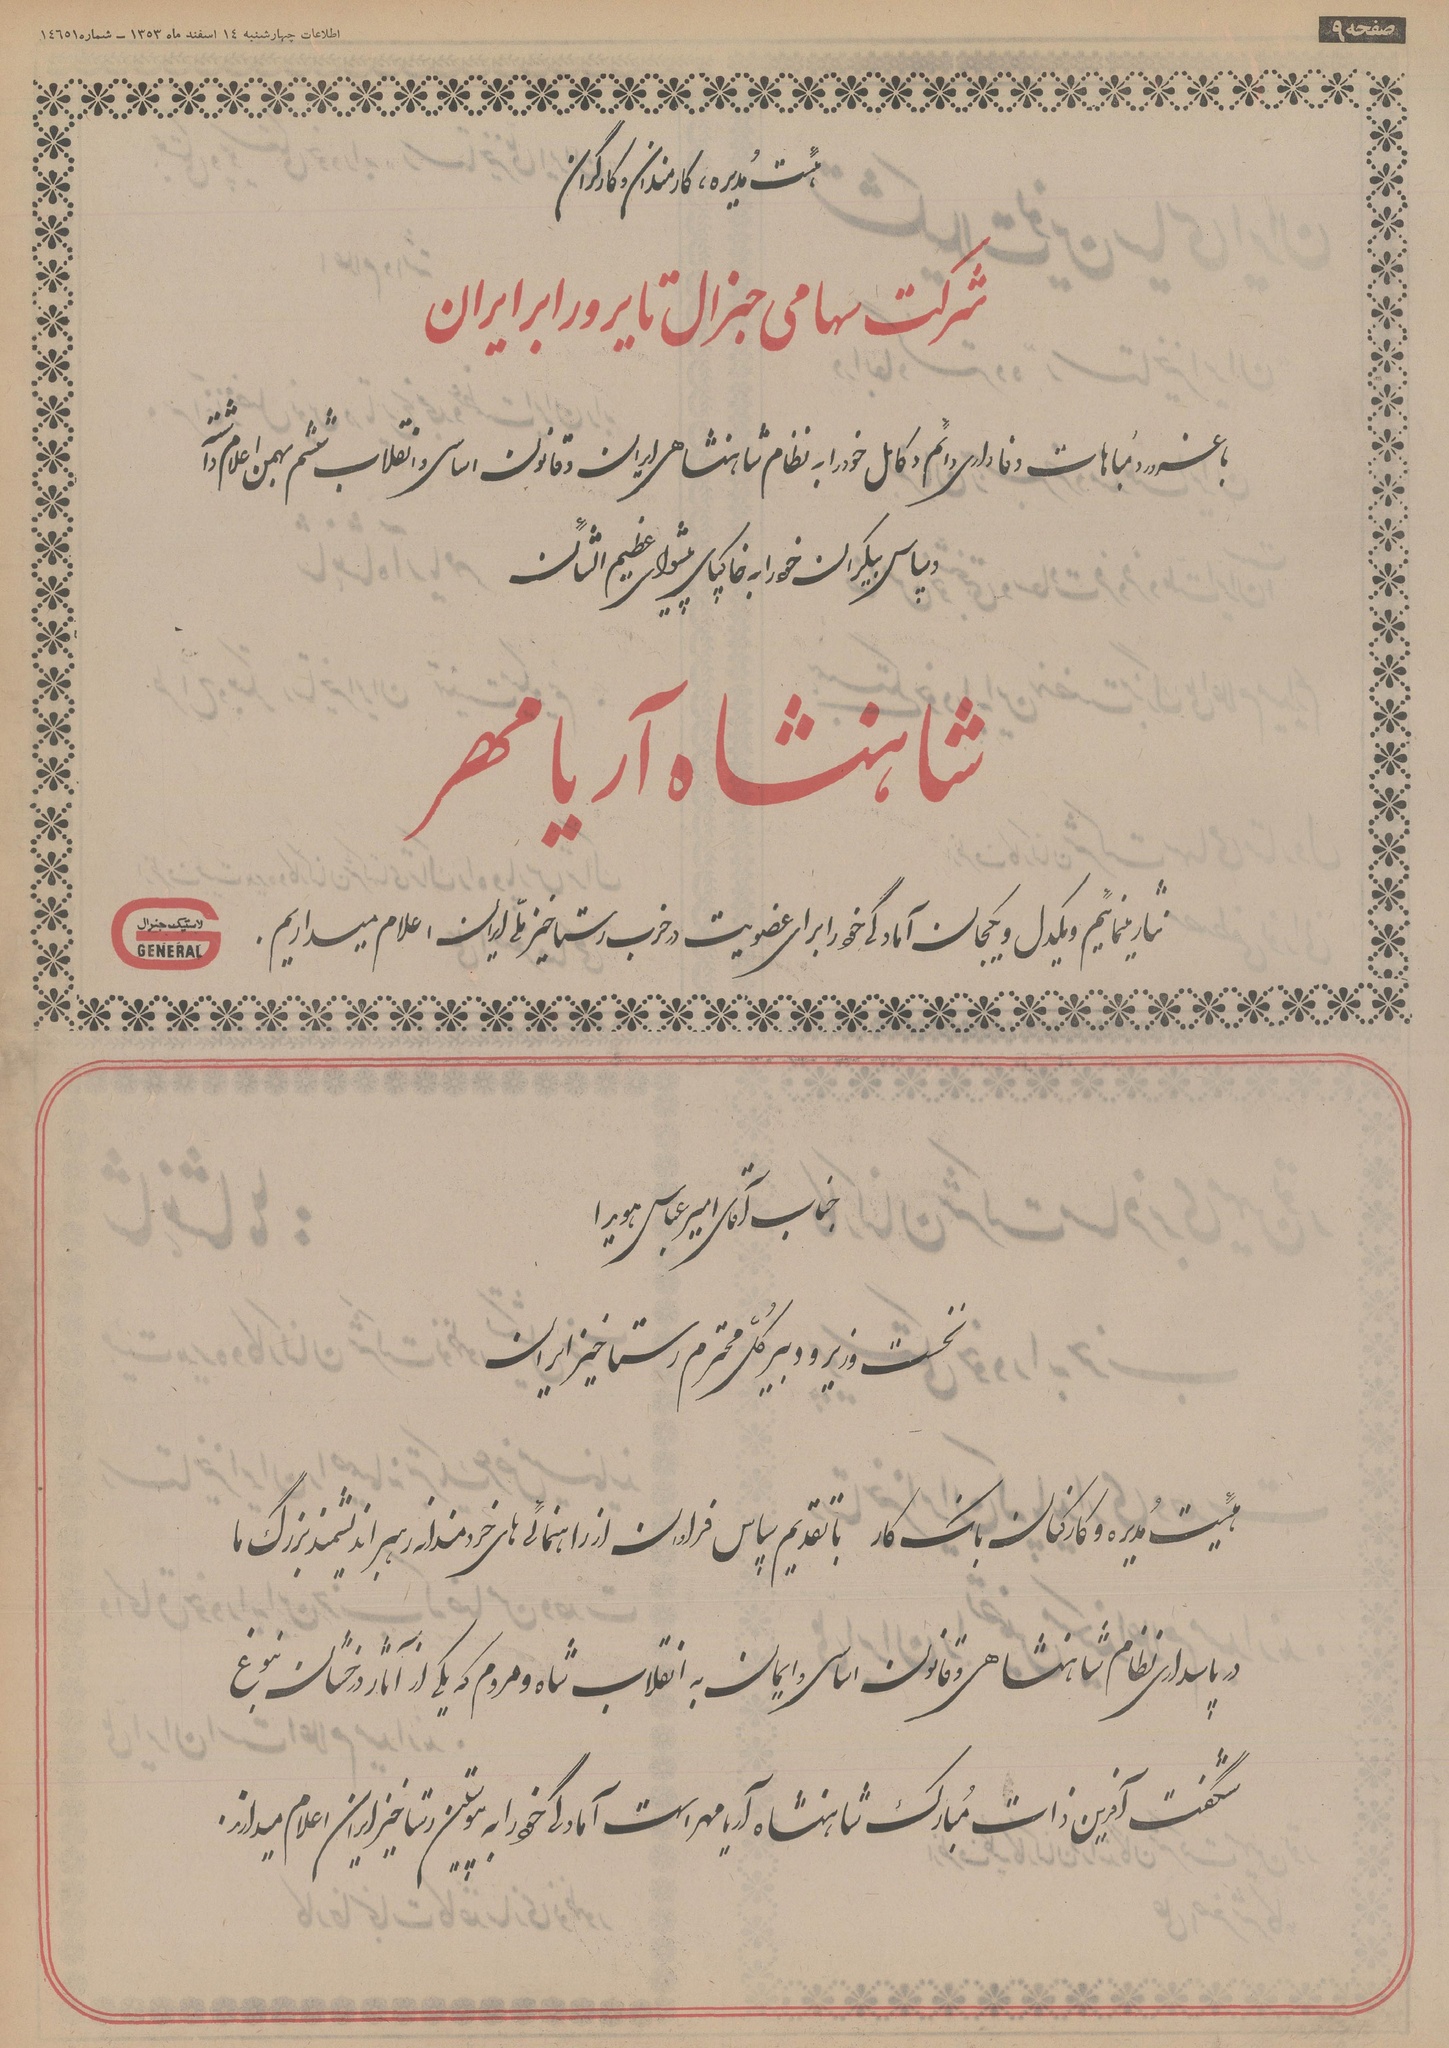 صفحه ۹
اطلاعات چهارشنبه ۱۴ اسفند ماه ۱۳۵۳ - شماره ۱۴۶۵۱
هیئت مدیره، کارمندان و کارگران
شرکت سهامی جنرال تایر و رابر ایران
با غرور و مباهات وفاداری دائم و کامل خود را به نظام شاهنشاهی ایران و قانون اساسی و انقلاب ششم بهمن اعلام داشته
و سپاس بیکران خود را به خاکپای پیشوای عظیم الشأن
شاهنشاه آریامهر
نثار مینمائیم و یکدل و یکجان آمادگی خود را برای عضویت در حزب رستاخیز ملی ایران اعلام میداریم .
لاستیک جنرال
GENERAL
جناب آقای امیر عباس هویدا
نخست وزیر و دبیر کل محترم رستاخیز ایران
هیئت مدیره و کارکنان بانک کار با تقدیم سپاس فراوان از راهنمائی های خردمندانه رهبر اندیشمند بزرگ ما
در پاسداری نظام شاهنشاهی و قانون اساسی و ایمان به انقلاب شاه و مردم که یکی از آثار درخشان نبوغ
شگفت آفرین ذات مبارک شاهنشاه آریامهر است آمادگی خود را به پیوستن رستاخیز ایران اعلام میدارند .